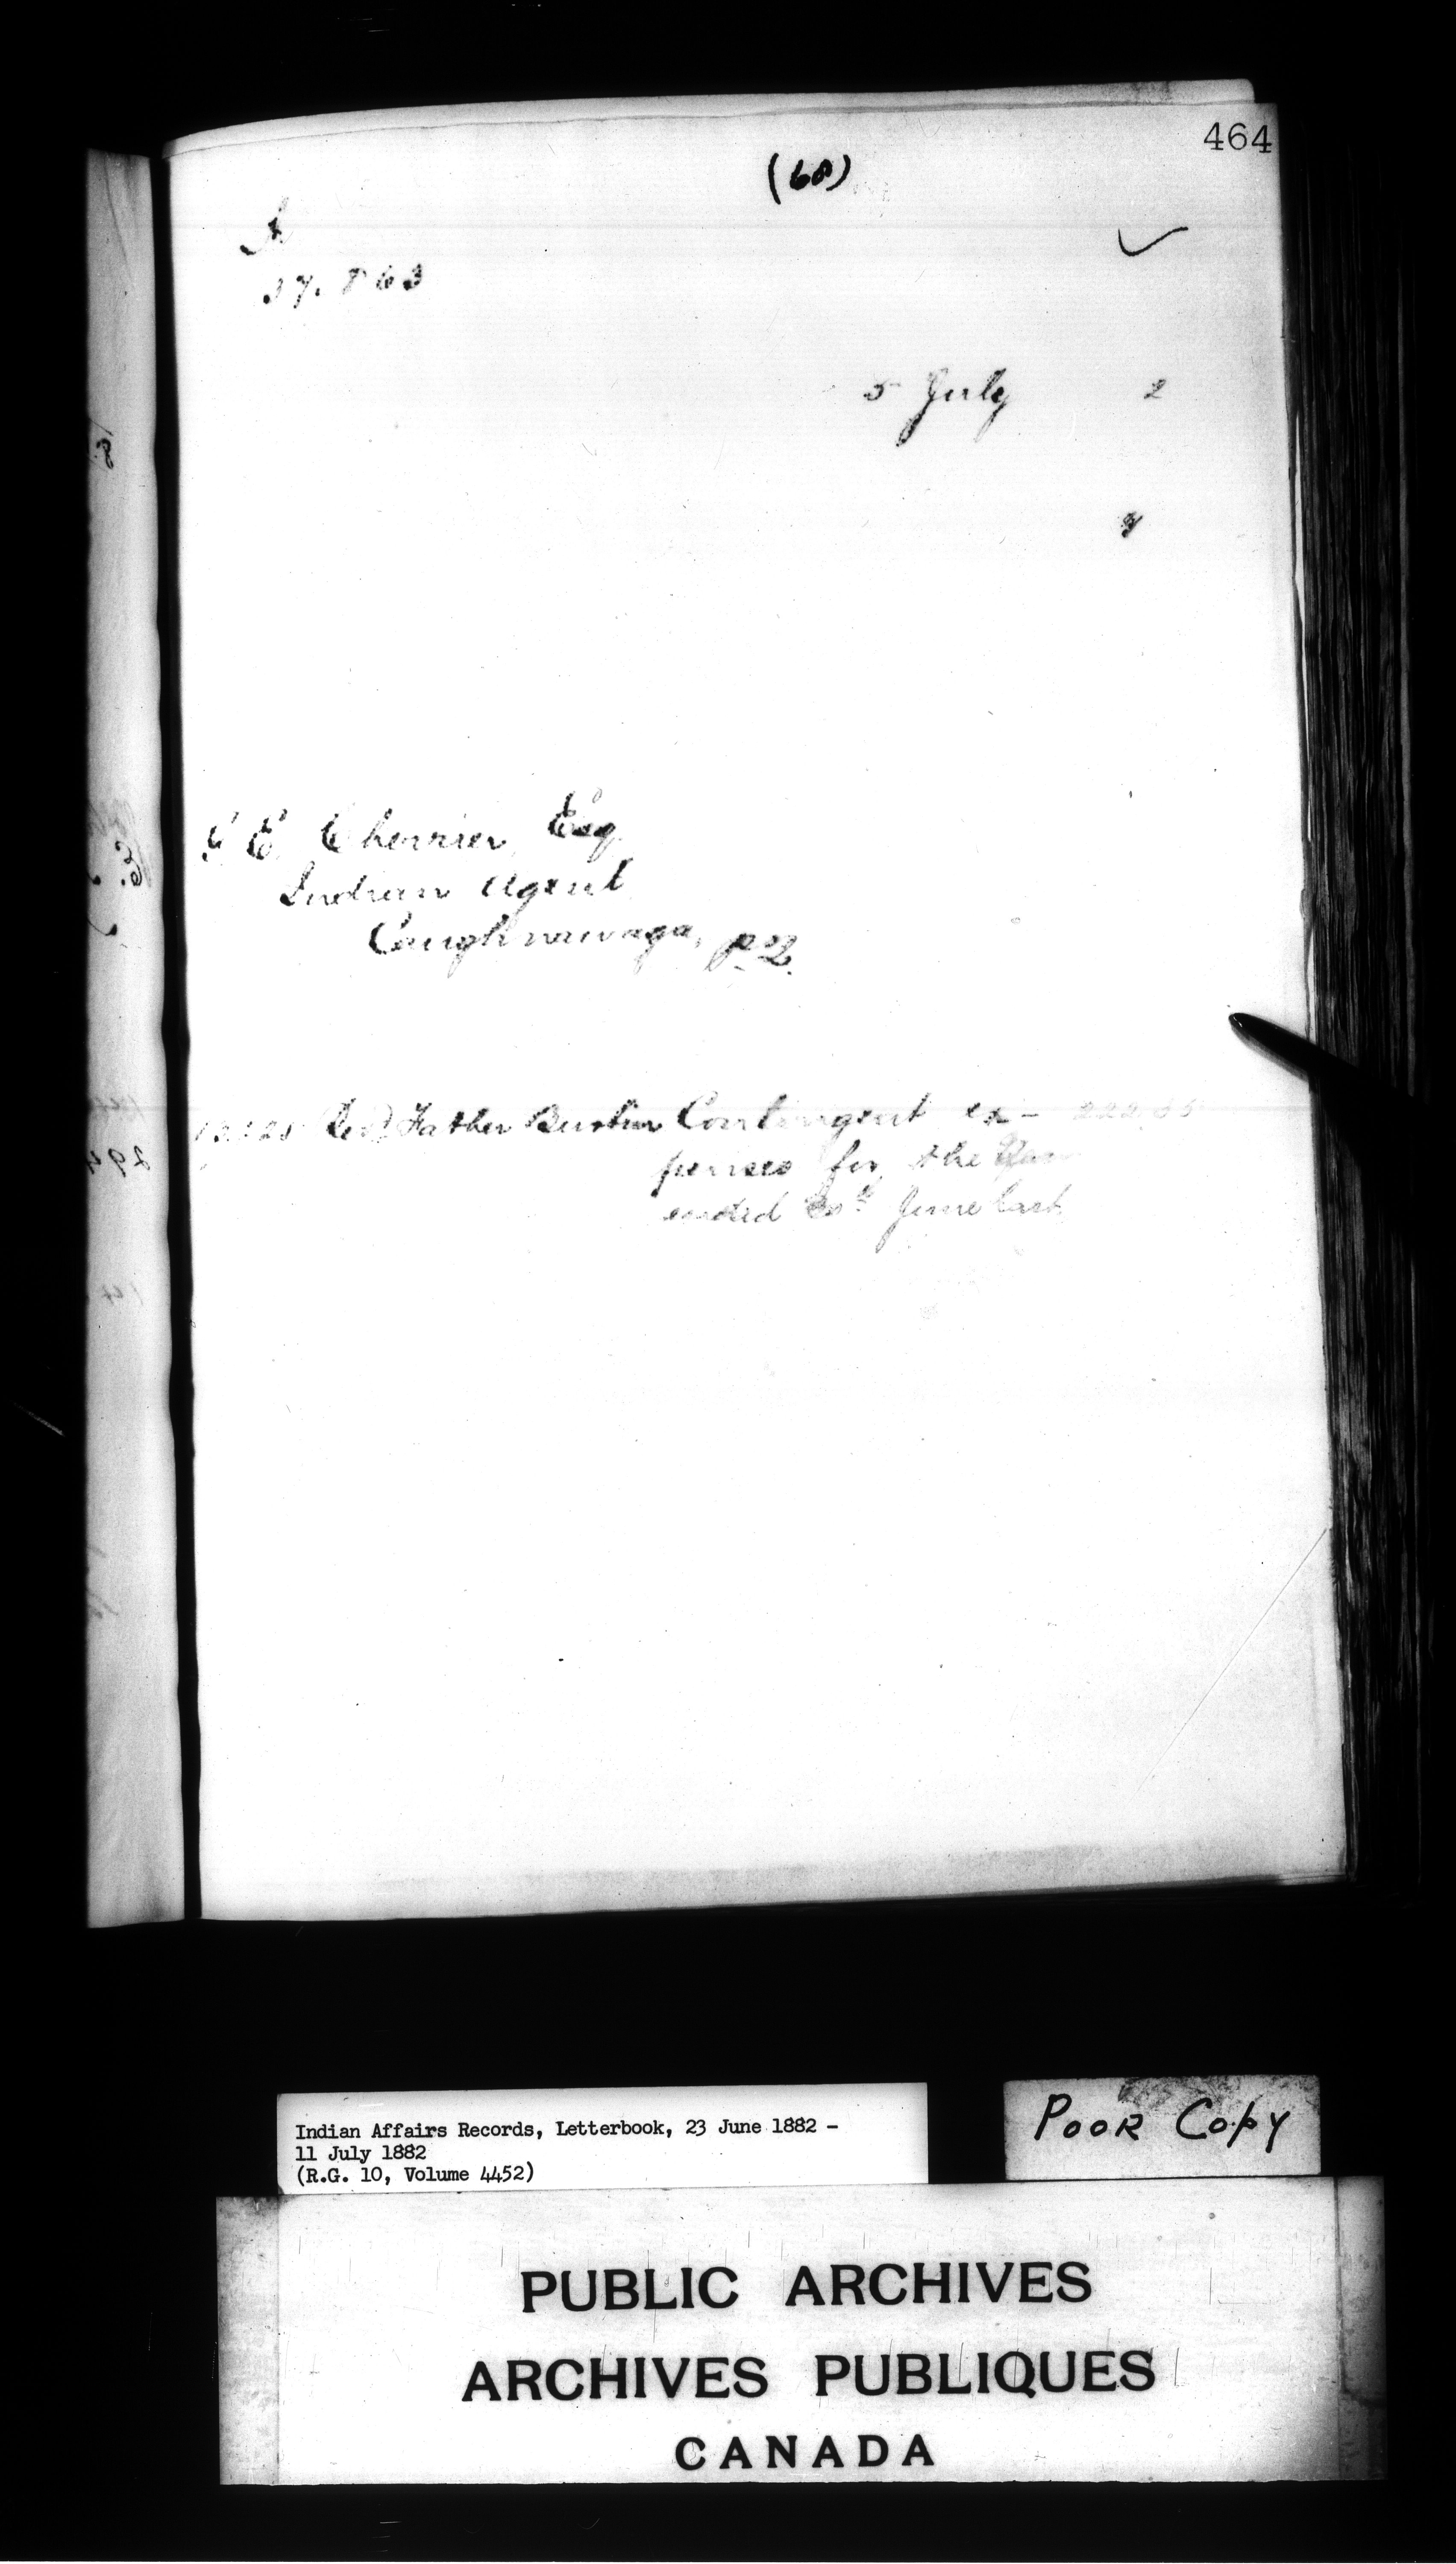 464
(68)
A
37.863
5 July 2
G E. Cherrier, Esq.
Indian Agent
Caughnawaga, P.Q.
Revd Father Burtin Contingent ex- 222.55
penses for the Year
ended 30th June last
Indian Affairs Records, Letterbook, 23 June 1882 -
11 July 1882
(R.G. 10, Volume 4452)
POOR COPY
PUBLIC ARCHIVES
ARCHIVES PUBLIQUES
CANADA